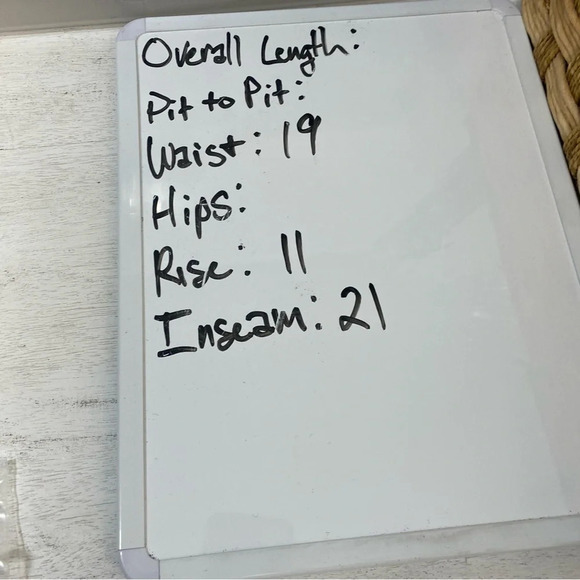 Overall Length:
Pit to Pit:
Waist: 19
Hips:
Rise: 11
Inseam: 21